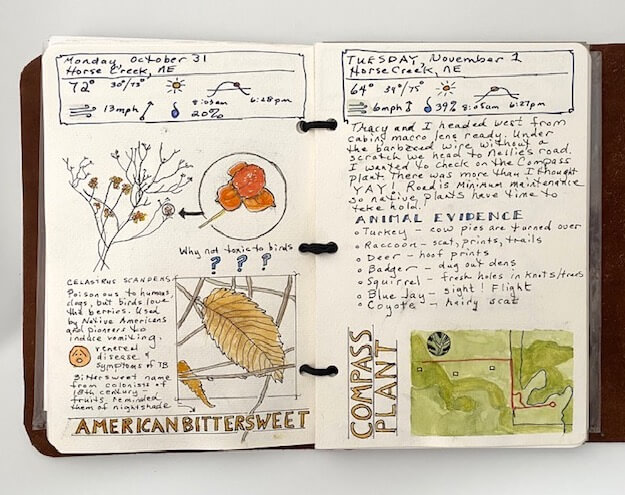 Monday, October 31
Horse Creek, NE
72° 30°/73°
8:03am 6:28pm
13mph 20%
Why not toxic to birds
? ? ?
CELASTRUS SCANDENS
Poisonous to humans,
dogs, but birds love
the berries. Used
by Native Americans
and pioneers to
induce vomiting,
venereal
disease &
symptoms of TB
Bittersweet name
from colonists of
18th century—
fruits reminded
them of nightshade
AMERICAN BITTERSWEET
TUESDAY, November 1
Horse Creek, NE
64° 34°/75°
6mph 39% 8:05am 6:27pm
Tracy and I headed west from
cabin, macro lens ready. Under
the barbed wire without a
scratch we head to Nellie's road.
I wanted to check on the Compass
plant. There was more than I thought
YAY! Road is minimum maintenance
so native plants have time to
take hold.
ANIMAL EVIDENCE
Turkey - cow pies are turned over
Raccoon - scat, prints, trails
Deer - hoof prints
Badger - dug out dens
Squirrel - fresh holes in knots/trees
Blue Jay - sight! Flight
Coyote - hairy scat
COMPASS
PLANT